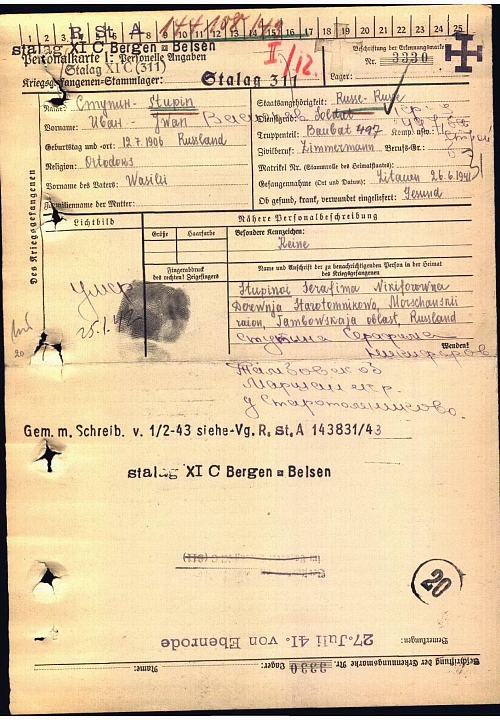 1 2 3 4 5 6 7 8 9 10 11 12 13 14 15 16 17 18 19 20 21 22 23 24 25
R. St. A
stalag XI C Bergen = Belsen
Personalkarte I: Personelle Angaben
Stalag XI C (311)
I./12.
Beschriftung der Erkennungsmarke
Nr. 3330
Kriegsgefangenen-Stammlager: Stalag 311
Lager:
Des Kriegsgefangenen
Name: Ступин - Stupin
Vorname: Иван - Iwan
Geburtstag und -ort: 12.7.1906 Russland
Religion: Ortodoks
Vorname des Vaters: Wasilii
Familienname der Mutter:
Staatsangehörigkeit: Russe - Russe
Dienstgrad: Soldat
Truppenteil: Baubat 497 Komp. usw.:
Zivilberuf: Zimmermann Berufs-Gr.:
Matrikel Nr. (Stammrolle des Heimatstaates):
Gefangennahme (Ort und Datum): Litauen 26.6.1941
Ob gesund, krank, verwundet eingeliefert: Gesund
Lichtbild
Nähere Personalbeschreibung
Größe
Haarfarbe
Besondere Kennzeichen:
Keine
Fingerabdruck
des rechten! Zeigefingers
Name und Anschrift der zu benachrichtigenden Person in der Heimat
des Kriegsgefangenen
Stupinoi Serafima Nikiforowna
Derewnja Starotomnikowo, Morschanskii
raion, Tambowskaja oblast, Russland
Wenden!
Ступина Серафима
Никифоров
умер
25.1.42
Тамбовск об
Маршан ск р.
д Старотомниково.
Gem. m. Schreib. v. 1/2-43 siehe-Vg. R. St. A 143831/43
stalag XI C Bergen = Belsen
20
27. Juli 41. von Ebenrode
Bemerkungen:
Beschriftung der Erkennungsmarke Nr. 3330 Lager: Name: